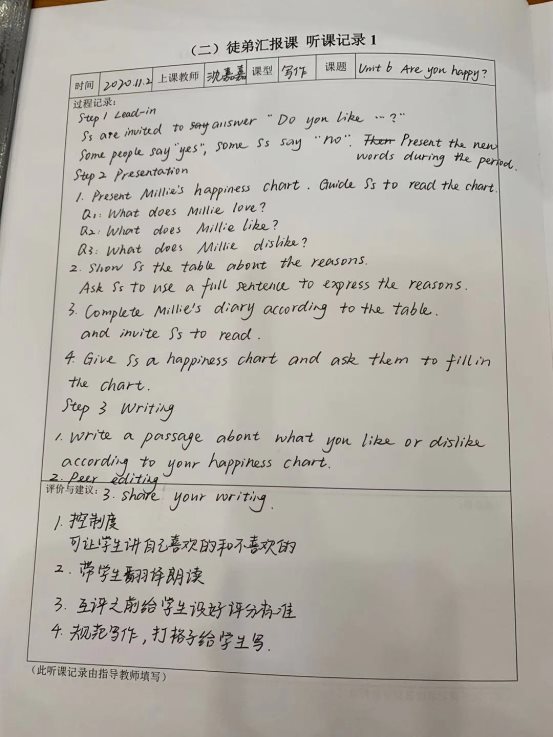 （二）徒弟汇报课 听课记录 1
时间 2020.11.2 上课教师 沈嘉嘉 课型 写作 课题 Unit 6 Are you happy?
过程记录：
Step 1 Lead-in
Ss are invited to say answer "Do you like …?"
Some people say "yes", some Ss say "no". Then Present the new
words during the period.
Step 2 Presentation
1. Present Millie's happiness chart. Guide Ss to read the chart.
Q1: What does Millie love?
Q2: What does Millie like?
Q3: What does Millie dislike?
2. Show Ss the table about the reasons.
Ask Ss to use a full sentence to express the reasons.
3. Complete Millie's diary according to the table.
and invite Ss to read.
4. Give Ss a happiness chart and ask them to fill in
the chart.
Step 3 Writing
1. Write a passage about what you like or dislike
according to your happiness chart.
2. Peer editing
评价与建议： 3. share your writing.
1. 控制度
可让学生讲自己喜欢的和不喜欢的
2. 带学生翻译朗读
3. 互评之前给学生设好评分标准
4. 规范写作，打格子给学生写.
（此听课记录由指导教师填写）